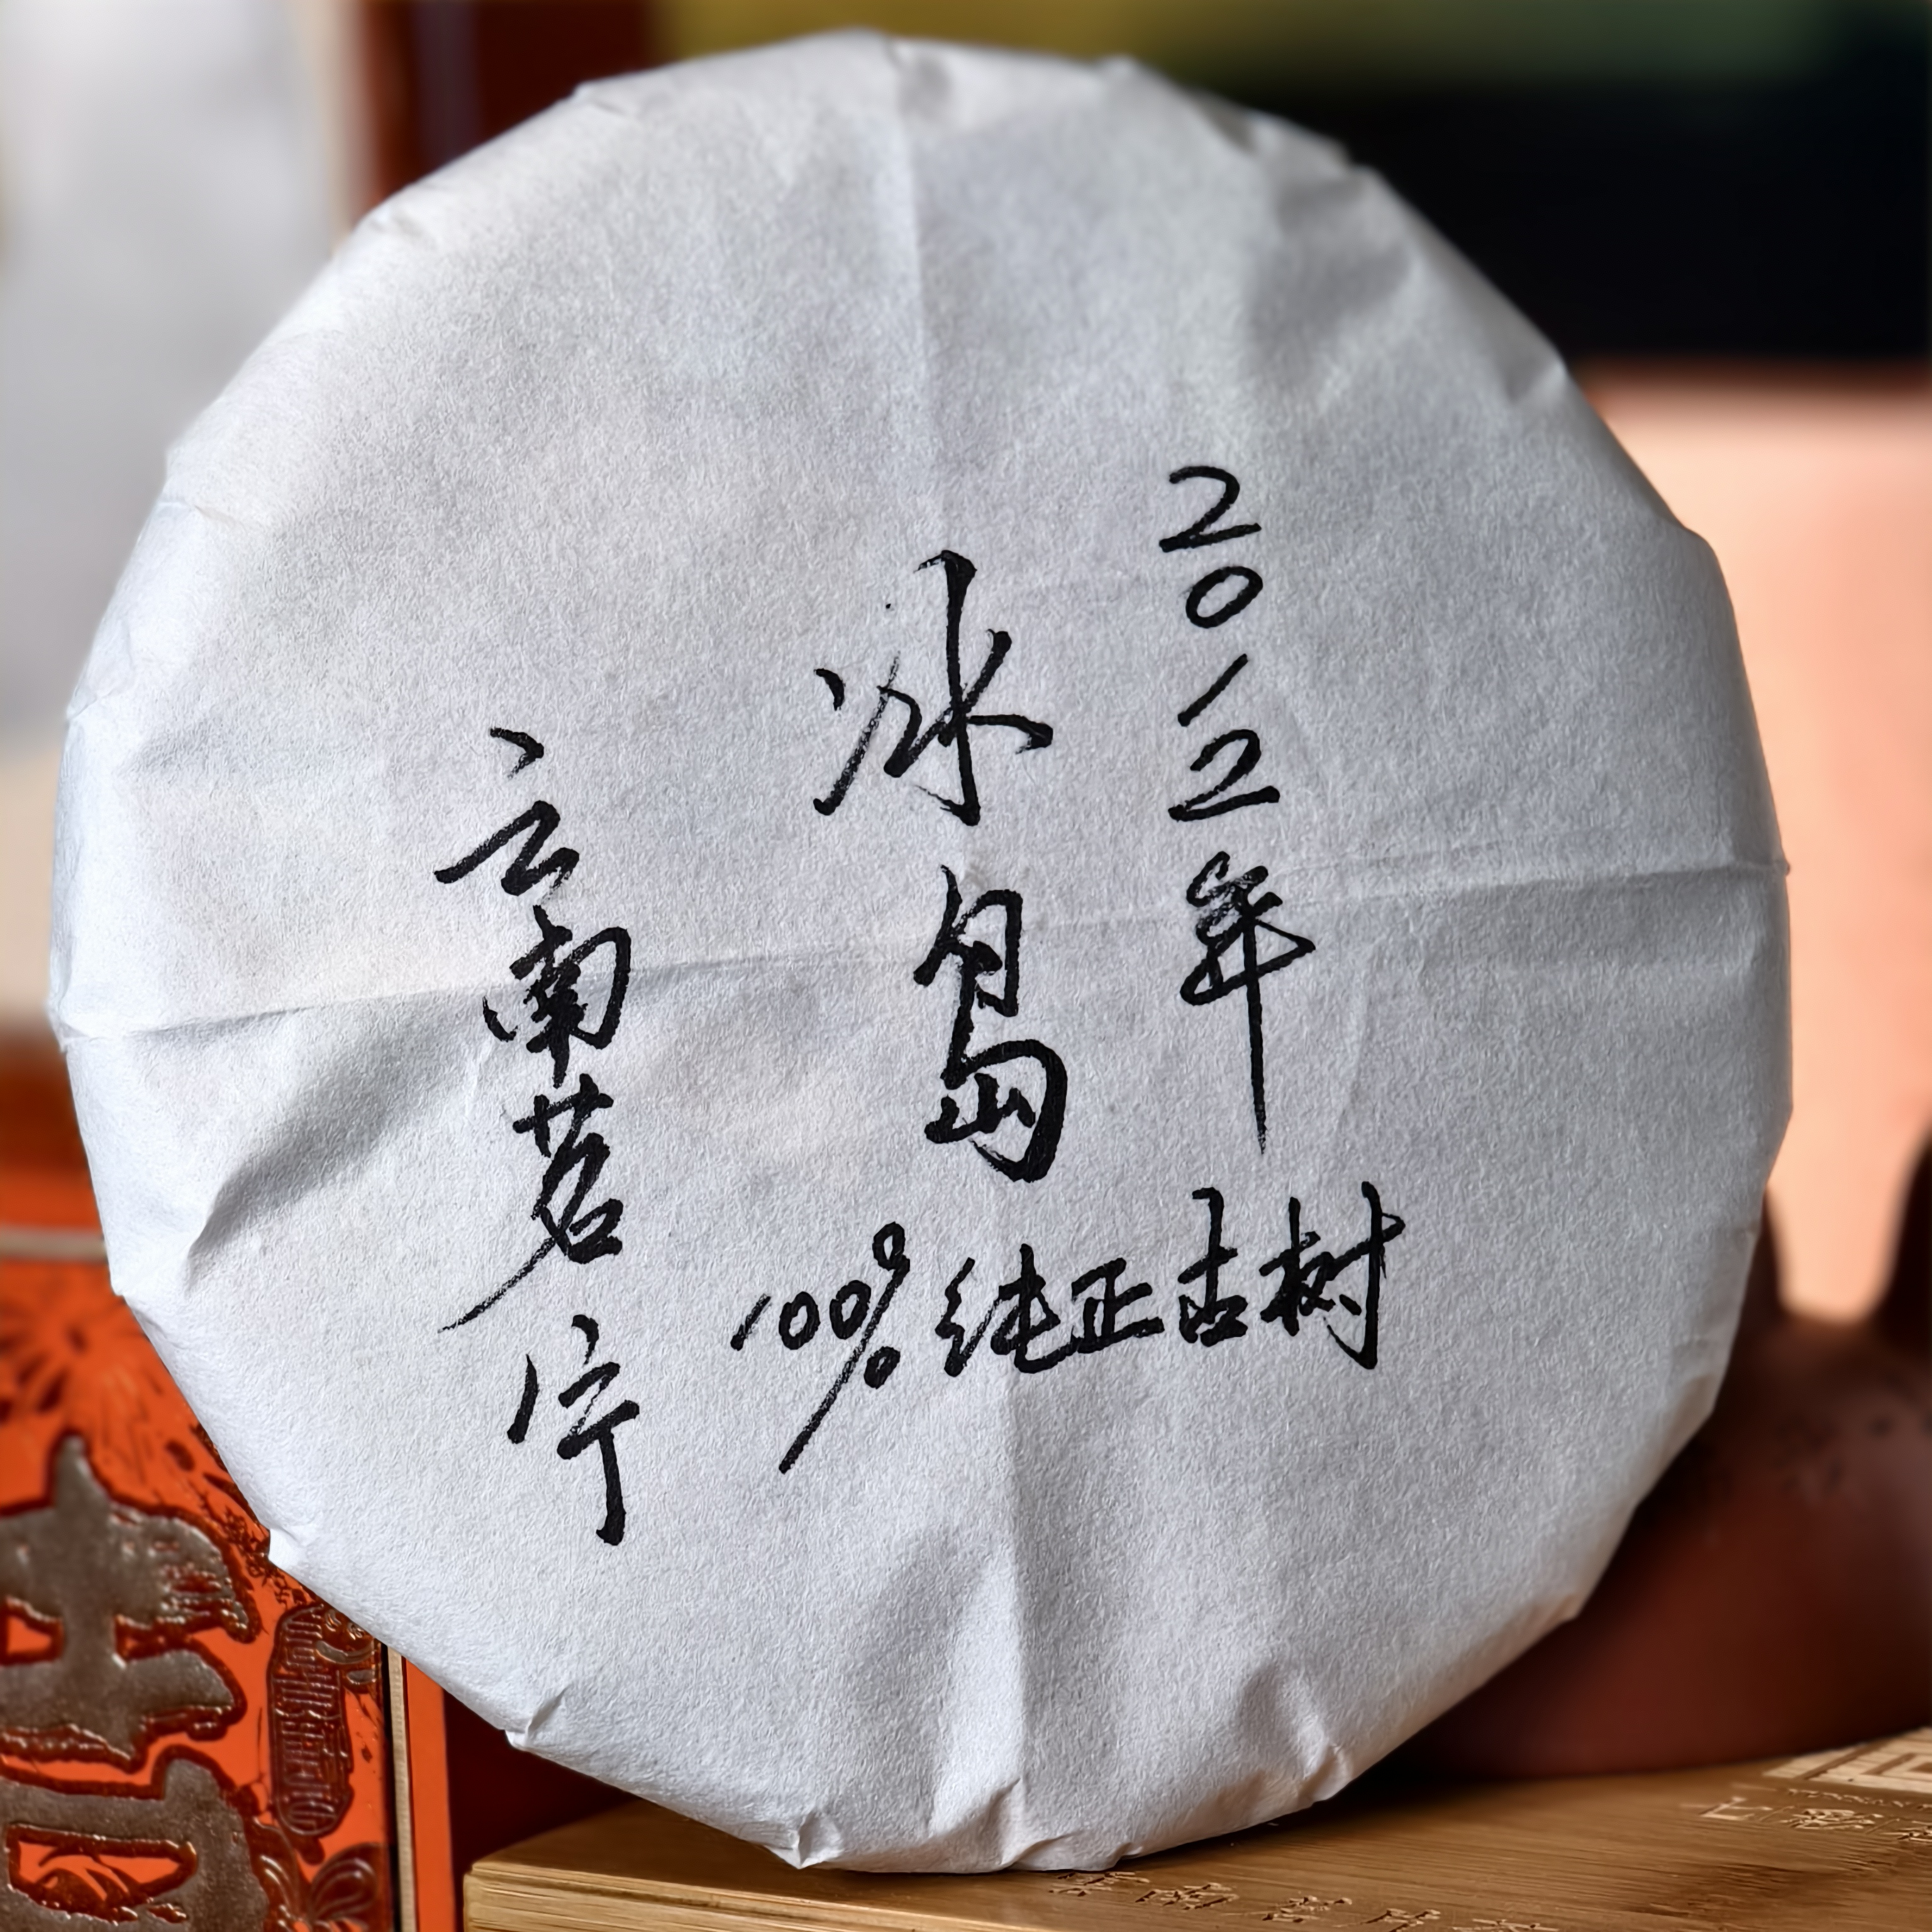 2012年
冰岛
100%纯正古树
云南茗宁